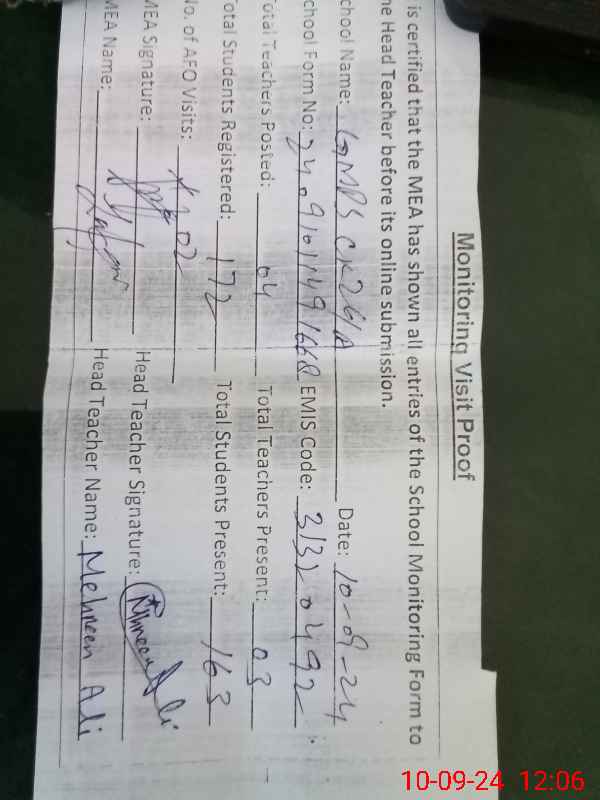 Monitoring Visit Proof
is certified that the MEA has shown all entries of the School Monitoring Form to
he Head Teacher before its online submission.
chool Name: Date: 10-09-24
chool Form No: EMIS Code: 31320492
otal Teachers Posted: 04 Total Teachers Present: 03
otal Students Registered: 172 Total Students Present: 163
No. of AEO Visits: 02
MEA Signature: Head Teacher Signature:
MEA Name: Head Teacher Name: Mehreen Ali
10-09-24 12:06